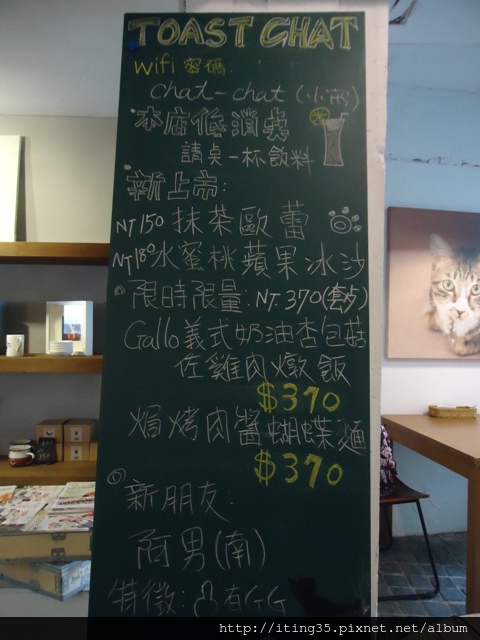 TOAST CHAT
wifi 密碼:
chat-chat (小寫)
本店低消是
請點一杯飲料
新上市:
NT150 抹茶歐蕾
NT180 水蜜桃蘋果冰沙
限時限量: NT.370(套)
Gallo義式奶油杏包菇
佐雞肉燉飯
$370
焗烤肉醬蝴蝶麵
$370
新朋友:
阿男(南)
特徵: 有GG
http://iting35.pixnet.net/album